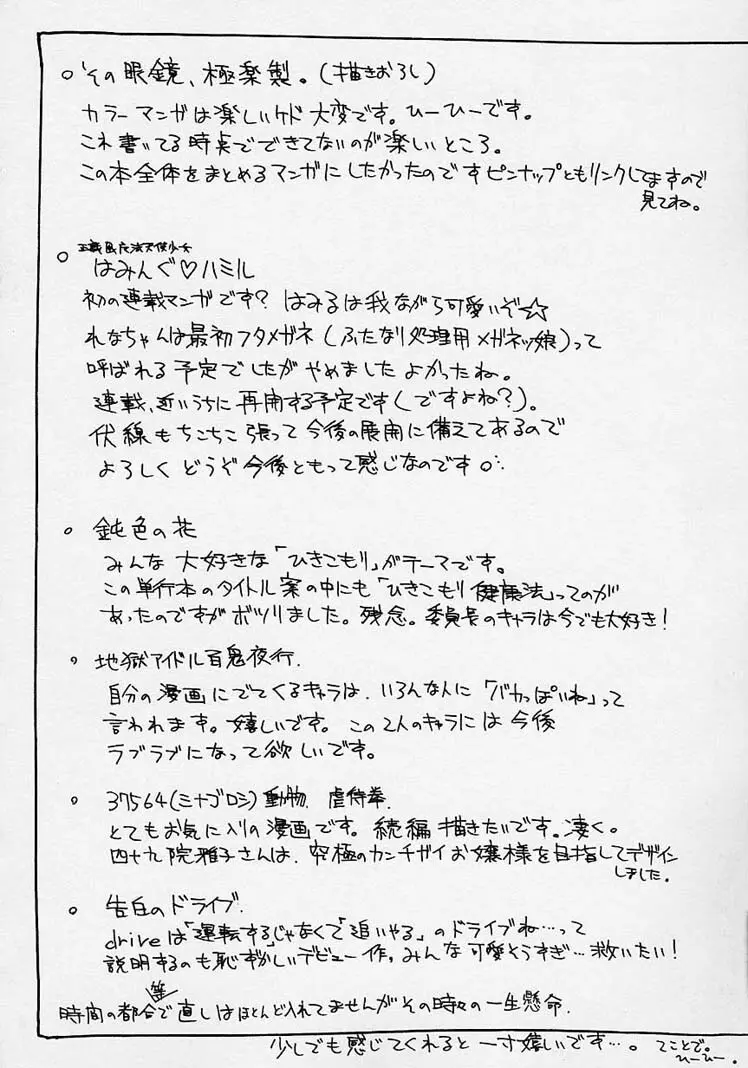 ○ その眼鏡、極楽製。(描きおろし)
カラーマンガは楽しいケド大変です。ひーひーです。
これ書いてる時点でできてないのが楽しいところ。
この本全体をまとめるマンガにしたかったのですピンナップともリンクしてますので
見てね。
魔法天使少女
○ はみんぐ♡ハミル
初の連載マンガです? はみるは我ながら可愛いぞ☆
れなちゃんは最初フタメガネ(ふたなり処理用メガネッ娘)って
呼ばれる予定でしたがやめましたよかったね。
連載、近いうちに再開する予定です(ですよね?)。
伏線もちこちこ張って今後の展開に備えてあるので
よろしくどうぞ今後ともって感じなのです
○ 鈍色の花
みんな大好きな「ひきこもり」がテーマです。
この単行本のタイトル案の中にも「ひきこもり健康法」ってのが
あったのですがボツりました。残念。委員長のキャラは今でも大好き!
○ 地獄アイドル百鬼夜行.
自分の漫画にでてくるキャラは、いろんな人に「バカっぽいね」って
言われます。嬉しいです。この2人のキャラには今後
ラブラブになって欲しいです。
○ 37564(ミナゴロシ)動物虐待拳.
とてもお気に入りの漫画です。続編描きたいです。凄く。
四十九院雅子さんは、究極のカンチガイお嬢様を目指してデザイン
しました。
○ 告白のドライブ.
driveは「運転する」じゃなくて「追いやる」のドライブね…って
説明するのも恥ずかしいデビュー作。みんな可愛そうすぎ…救いたい!
時間の都合等で直しはほとんど入れてませんがその時々の一生懸命.
少しでも感じてくれると一寸嬉しいです…。てことで。
ひーひー。